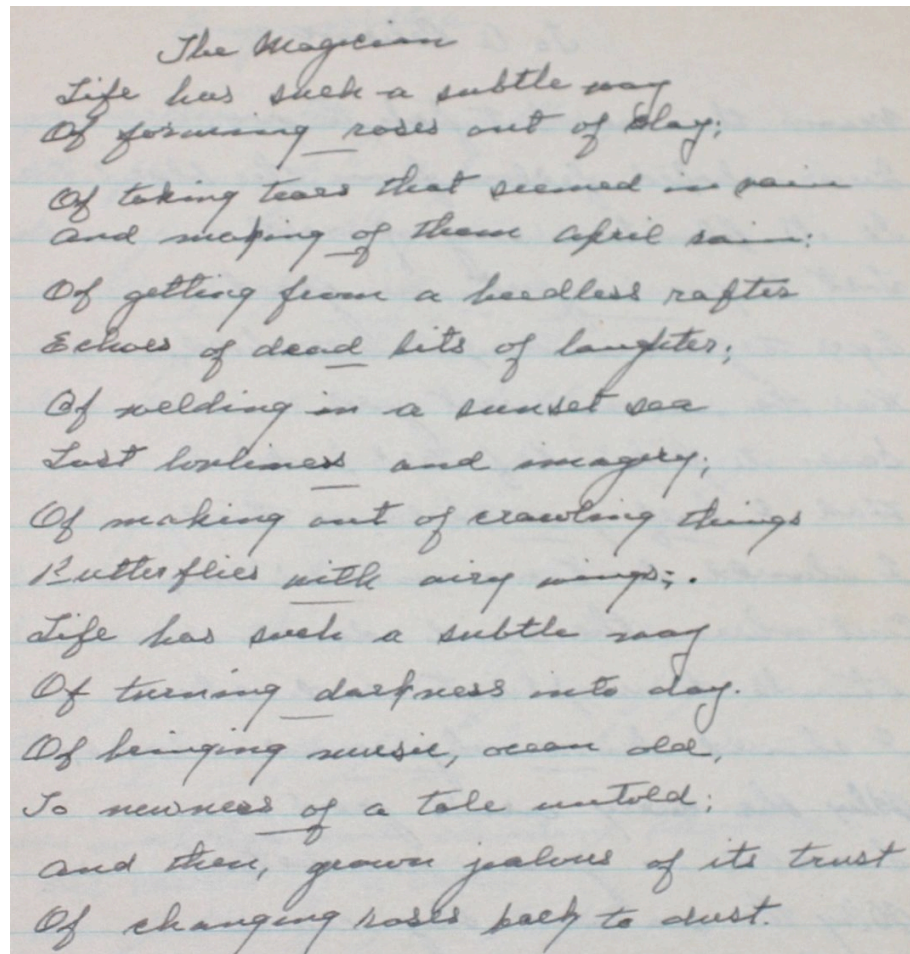 The Magician
Life has such a subtle way
Of forming roses out of clay;
Of taking tears that seemed in vain
And making of them April rain;
Of getting from a heedless rafter
Echoes of dead bits of laughter;
Of welding in a sunset sea
Lost lovliness and imagery;
Of making out of crawling things
Butterflies with airy wings;.
Life has such a subtle way
Of turning darkness into day.
Of bringing music, ocean old,
To newness of a tale untold;
And then, grown jealous of its trust
Of changing roses back to dust.